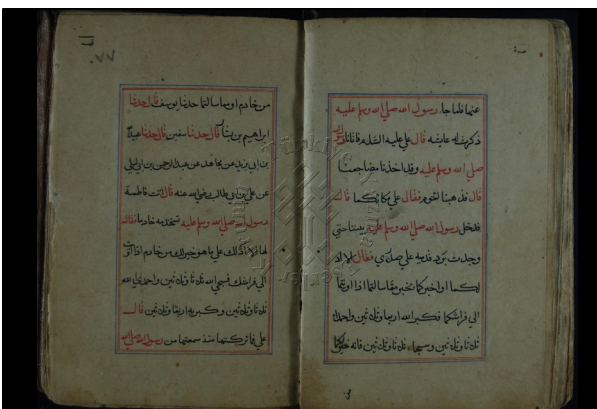 عنها فلما جا رسول الله صلي الله وسلم عليه
ذكرت له عايشه قال علي عليه السلام فاتانا
صلي الله وسلم عليه وقد اخذنا مضاجعنا
قال فذهبنا لنقوم فقال علي مكانكما قال
فدخل رسول الله صلي الله وسلم عليه بيننا حتي
وجدت برد قدميه علي صدري فقال الا اد
لكما او اخبركما بخير مما سالتما اذا اويتما
الي فراشكما فكبر الله اربعا وثلاثين واحمداه
ثلاثا وثلاثين وسبحاه ثلاثا وثلاثين فانه خير لكما
٧٧
من خادم او مما سالتما حدثنا يوسف قال حدثنا
ابراهيم بن بشار قال حدثنا سفين قال حدثنا عبيد الله
بن ابي زيد عن مجاهد عن عبد الرحمن بن ابي ليلي
عن علي بن ابي طالب رضي الله عنه قال اتت فاطمة
رسول الله صلي الله وسلم عليه تستخدمه خادما فقال
لها فلا ادلك علي ما هو خير لك من خادم اذا اويت
الي فراشك فسبحي الله ثلاثا وثلاثين واحمدي الله
ثلاثا وثلاثين وكبريه اربعا وثلاثين قال
علي فما تركتها منذ سمعتها من رسول الله صلي الله